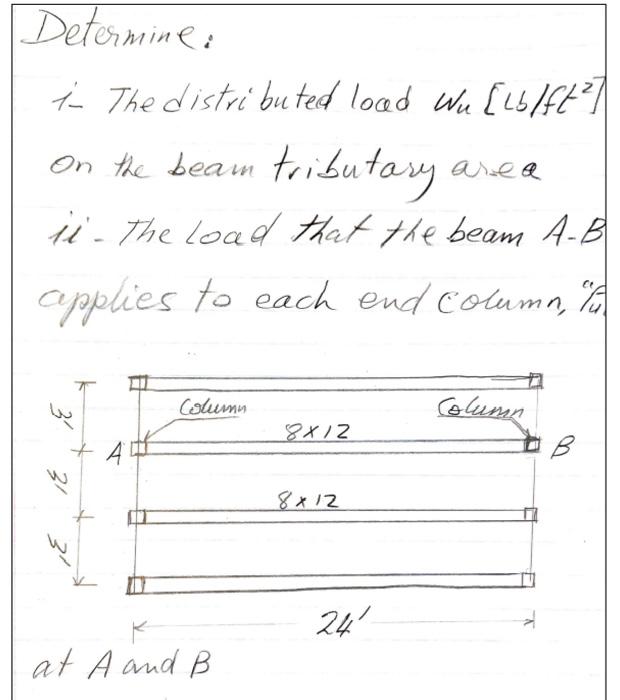 Determine:
i- The distributed load Wu [Lb/ft²]
on the beam tributary area
ii- The Load that the beam A-B
applies to each end column, "Pu
Column
Column
3'
8x12
A
B
3'
8x12
3'
24'
at A and B